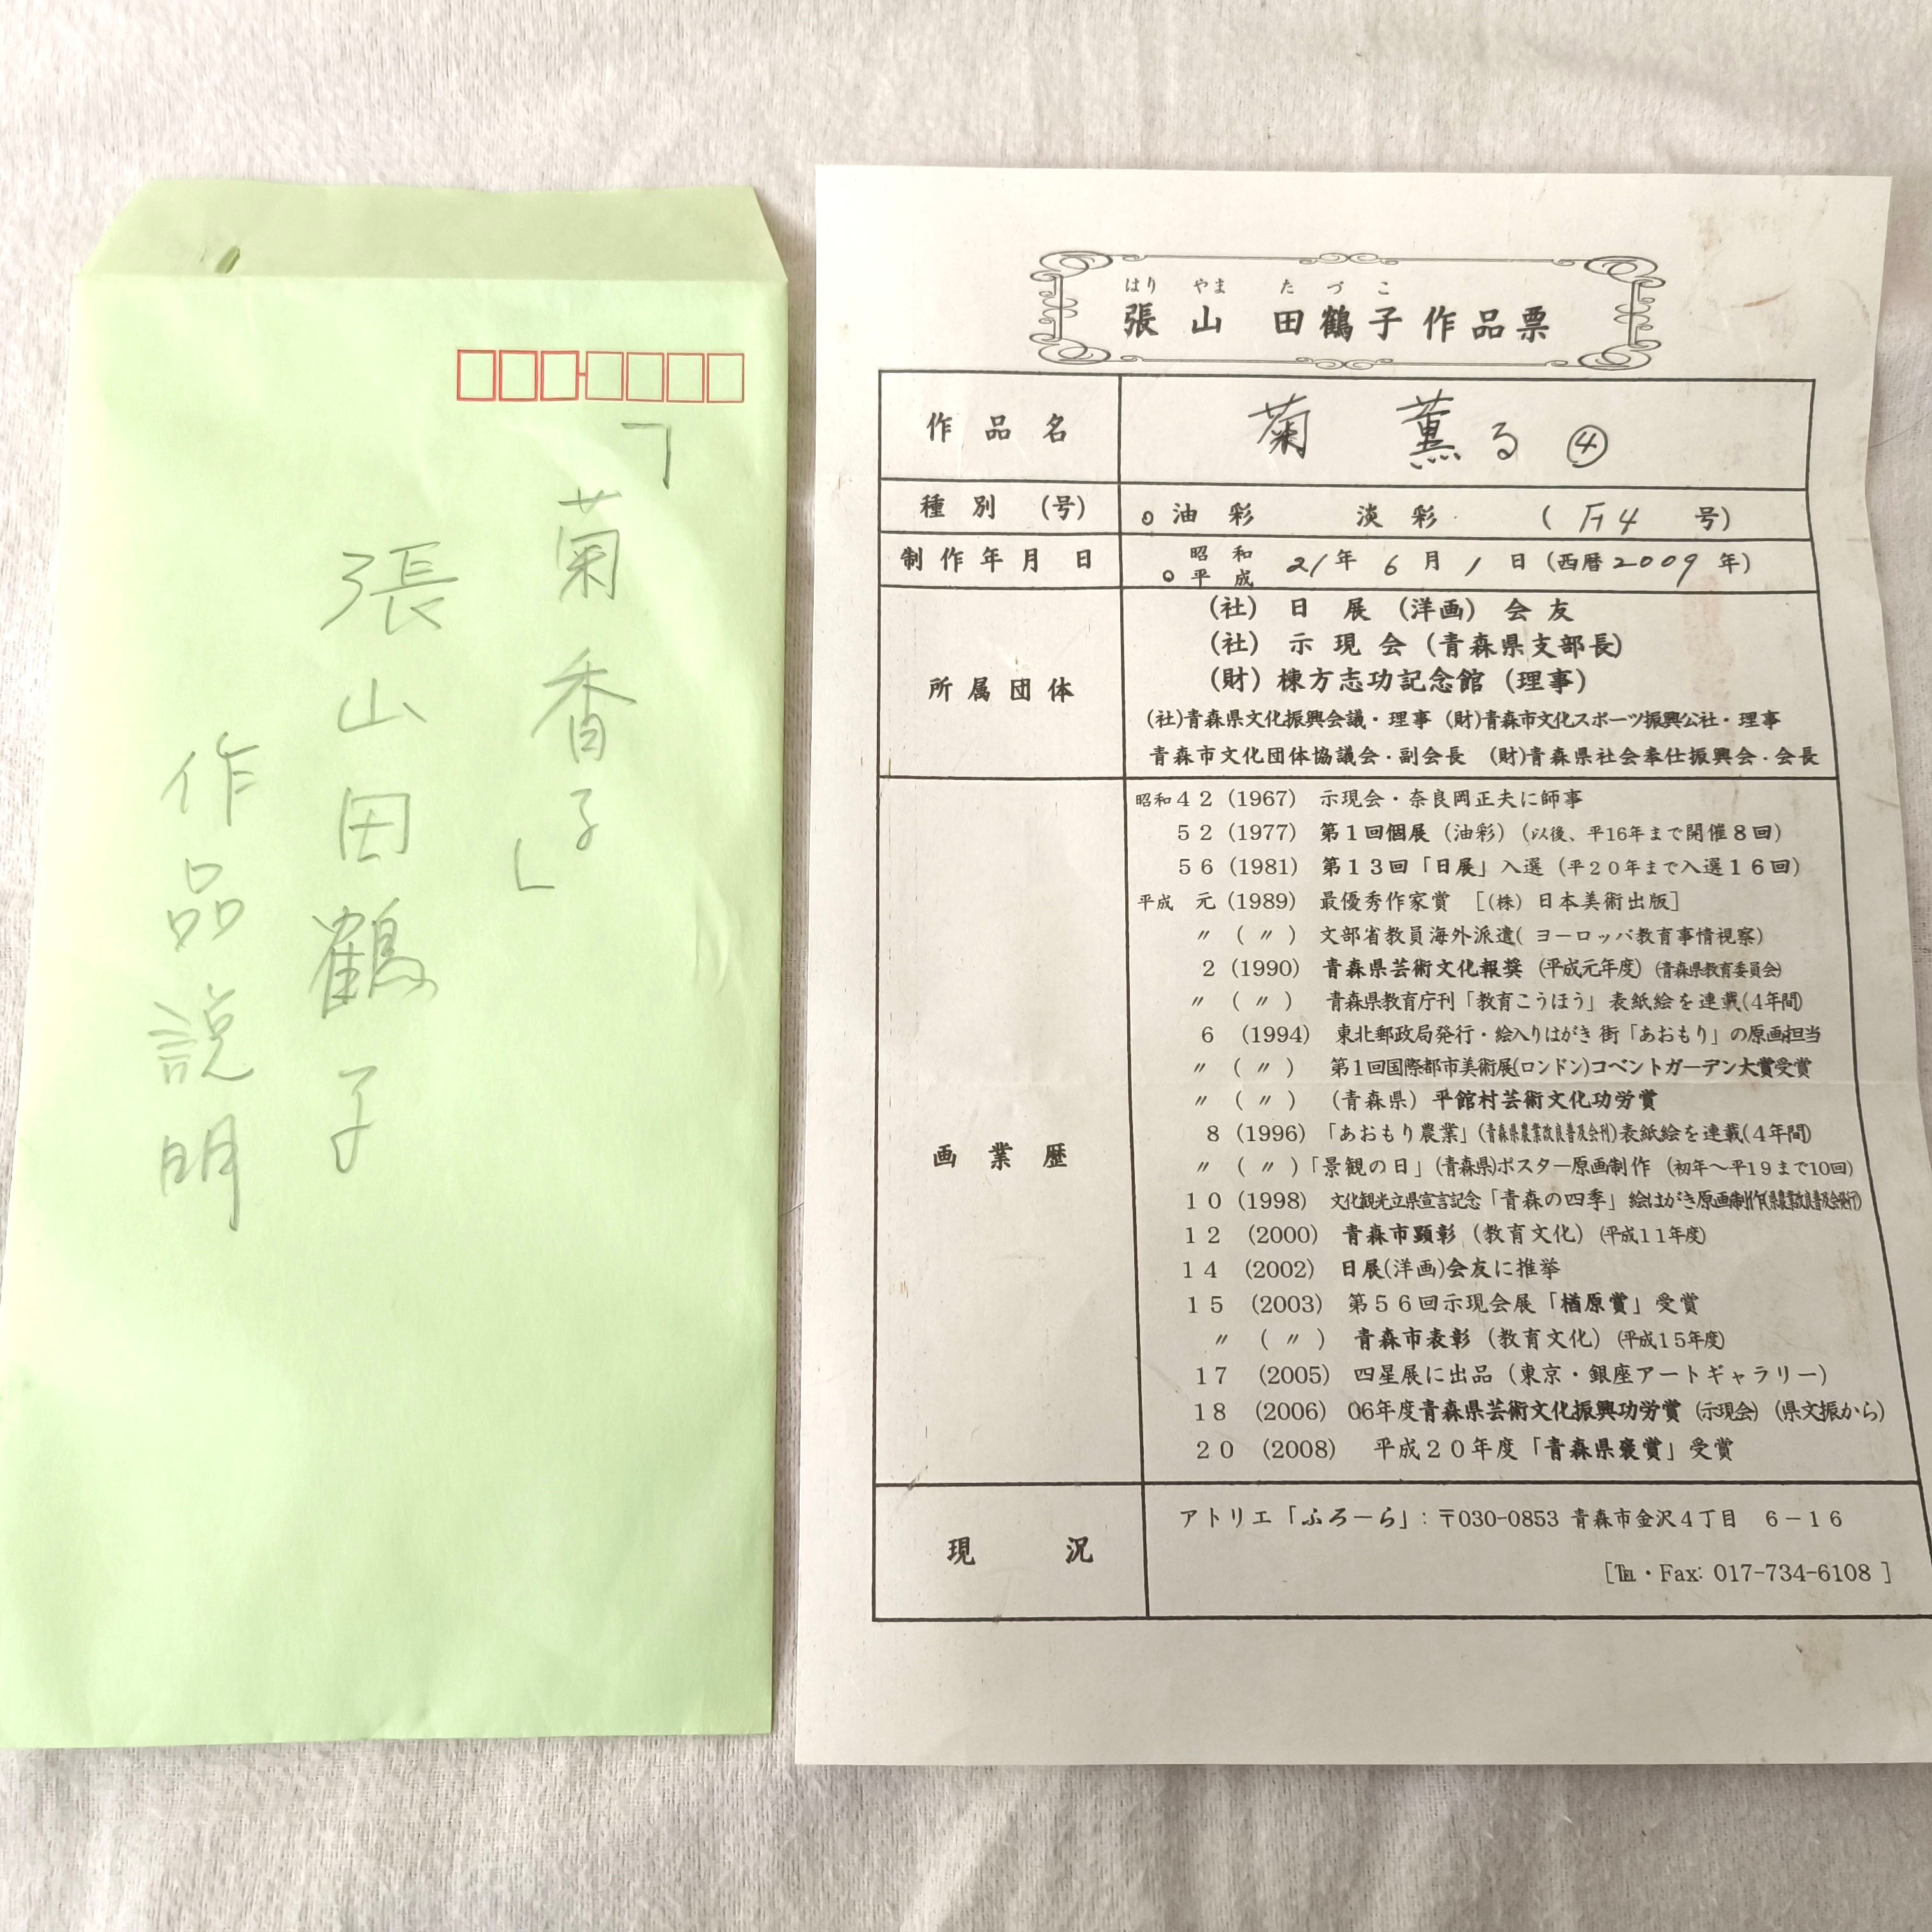 「菊香る」
張山田鶴子
作品説明
はり やま た づ こ
張 山 田鶴子作品票
作品名 菊 薫る ④
種別 (号) ○油彩 淡彩 (F4 号)
制作年月日 昭和 ○平成 21年 6月 1日 (西暦2009年)
所属団体
(社) 日 展 (洋画) 会 友
(社) 示 現 会 (青森県支部長)
(財) 棟方志功記念館 (理事)
(社)青森県文化振興会議・理事 (財)青森市文化スポーツ振興公社・理事
青森市文化団体協議会・副会長 (財)青森県社会奉仕振興会・会長
画業歴
昭和42 (1967) 示現会・奈良岡正夫に師事
52 (1977) 第1回個展 (油彩) (以後、平16年まで開催8回)
56 (1981) 第13回「日展」入選 (平20年まで入選16回)
平成 元 (1989) 最優秀作家賞 [(株) 日本美術出版]
〃 (〃) 文部省教員海外派遣( ヨーロッパ教育事情視察)
2 (1990) 青森県芸術文化報奨 (平成元年度) (青森県教育委員会)
〃 (〃) 青森県教育庁刊「教育こうほう」表紙絵を連載(4年間)
6 (1994) 東北郵政局発行・絵入りはがき 街「あおもり」の原画担当
〃 (〃) 第1回国際都市美術展(ロンドン)コベントガーデン大賞受賞
〃 (〃) (青森県) 平館村芸術文化功労賞
8 (1996) 「あおもり農業」(青森県農業改良普及会刊)表紙絵を連載(4年間)
〃 (〃)「景観の日」(青森県)ポスター原画制作 (初年～平19まで10回)
10 (1998) 文化観光立県宣言記念「青森の四季」絵はがき原画制作(県農業改良普及会発行)
12 (2000) 青森市顕彰 (教育文化) (平成11年度)
14 (2002) 日展(洋画)会友に推挙
15 (2003) 第56回示現会展「楢原賞」受賞
〃 (〃) 青森市表彰 (教育文化) (平成15年度)
17 (2005) 四星展に出品 (東京・銀座アートギャラリー)
18 (2006) 06年度青森県芸術文化振興功労賞 (示現会) (県文振から)
20 (2008) 平成20年度「青森県褒賞」受賞
現況
アトリエ「ふろーら」: 〒030-0853 青森市金沢4丁目 6-16
[℡・Fax: 017-734-6108 ]